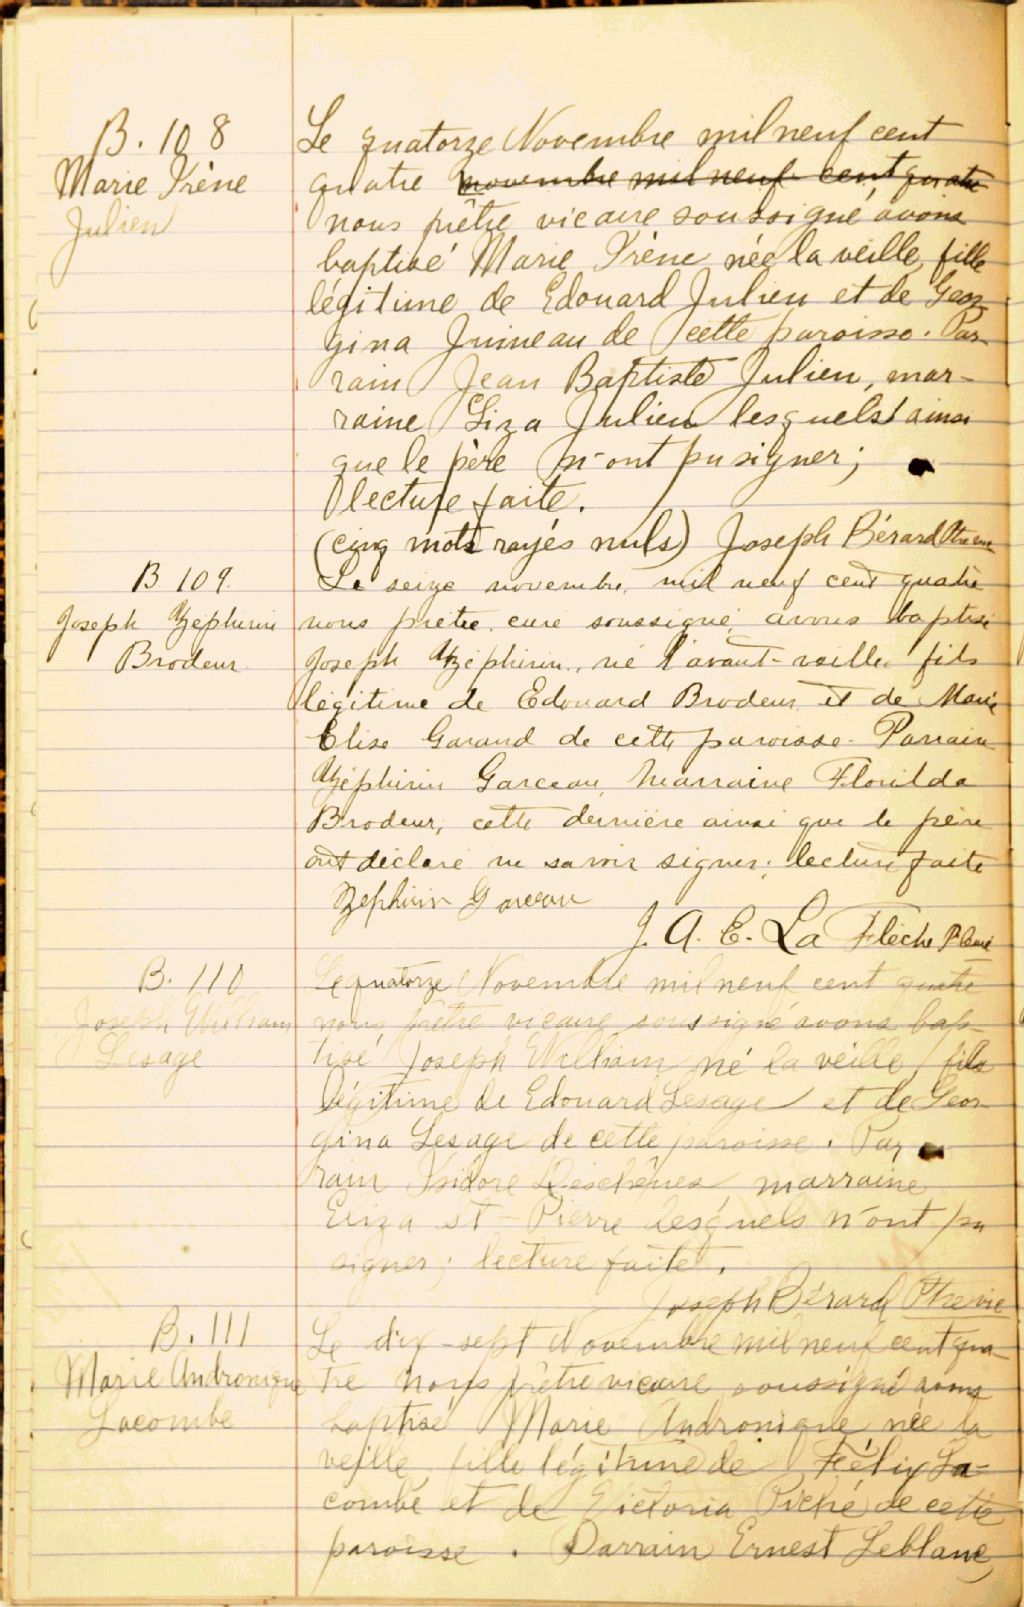 B. 108
Marie Irène
Julien
Le quatorze Novembre mil neuf cent
quatre novembre mil neuf cent quatre
nous prêtre vicaire soussigné avons
baptisé Marie Irène née la veille, fille
légitime de Edouard Julien et de Geor-
gina Juineau de cette paroisse. Par-
rain Jean Baptiste Julien, mar-
raine Liza Julien lesquels ainsi
que le père n'ont pu signer;
lecture faite.
(cinq mots rayés nuls) Joseph Bérard Ptre vic
B 109.
Joseph Zéphirin
Brodeur
Le seize novembre, mil neuf cent quatre
nous prêtre, curé soussigné, avons baptisé
Joseph Zéphirin, né l'avant-veille fils
légitime de Edouard Brodeur et de Marie
Elise Garand de cette paroisse. Parrain
Zéphirin Garceau, marraine Florilda
Brodeur, cette dernière ainsi que le père
ont déclaré ne savoir signer; lecture faite
Zephirin Garceau
J. A. E. La Flèche Ptre Curé
B. 110
Joseph William
Lesage
Le quatorze Novembre mil neuf cent quatre
nous, prêtre vicaire soussigné avons bap-
tisé Joseph William né la veille, fils
légitime de Edouard Lesage et de Geor-
gina Lesage de cette paroisse. Par-
rain Isidore Deschênes marraine
Eliza St-Pierre lesquels n'ont pu
signer; lecture faite.
Joseph Bérard Ptre vic
B. 111
Marie Andronique
Lacombe
Le dix-sept Novembre mil neuf cent qua-
tre nous prêtre vicaire soussigné avons
baptisé Marie Andronique née la
veille, fille légitime de Félix La-
combe et de Victoria Piché de cette
paroisse. Parrain Ernest Leblanc,